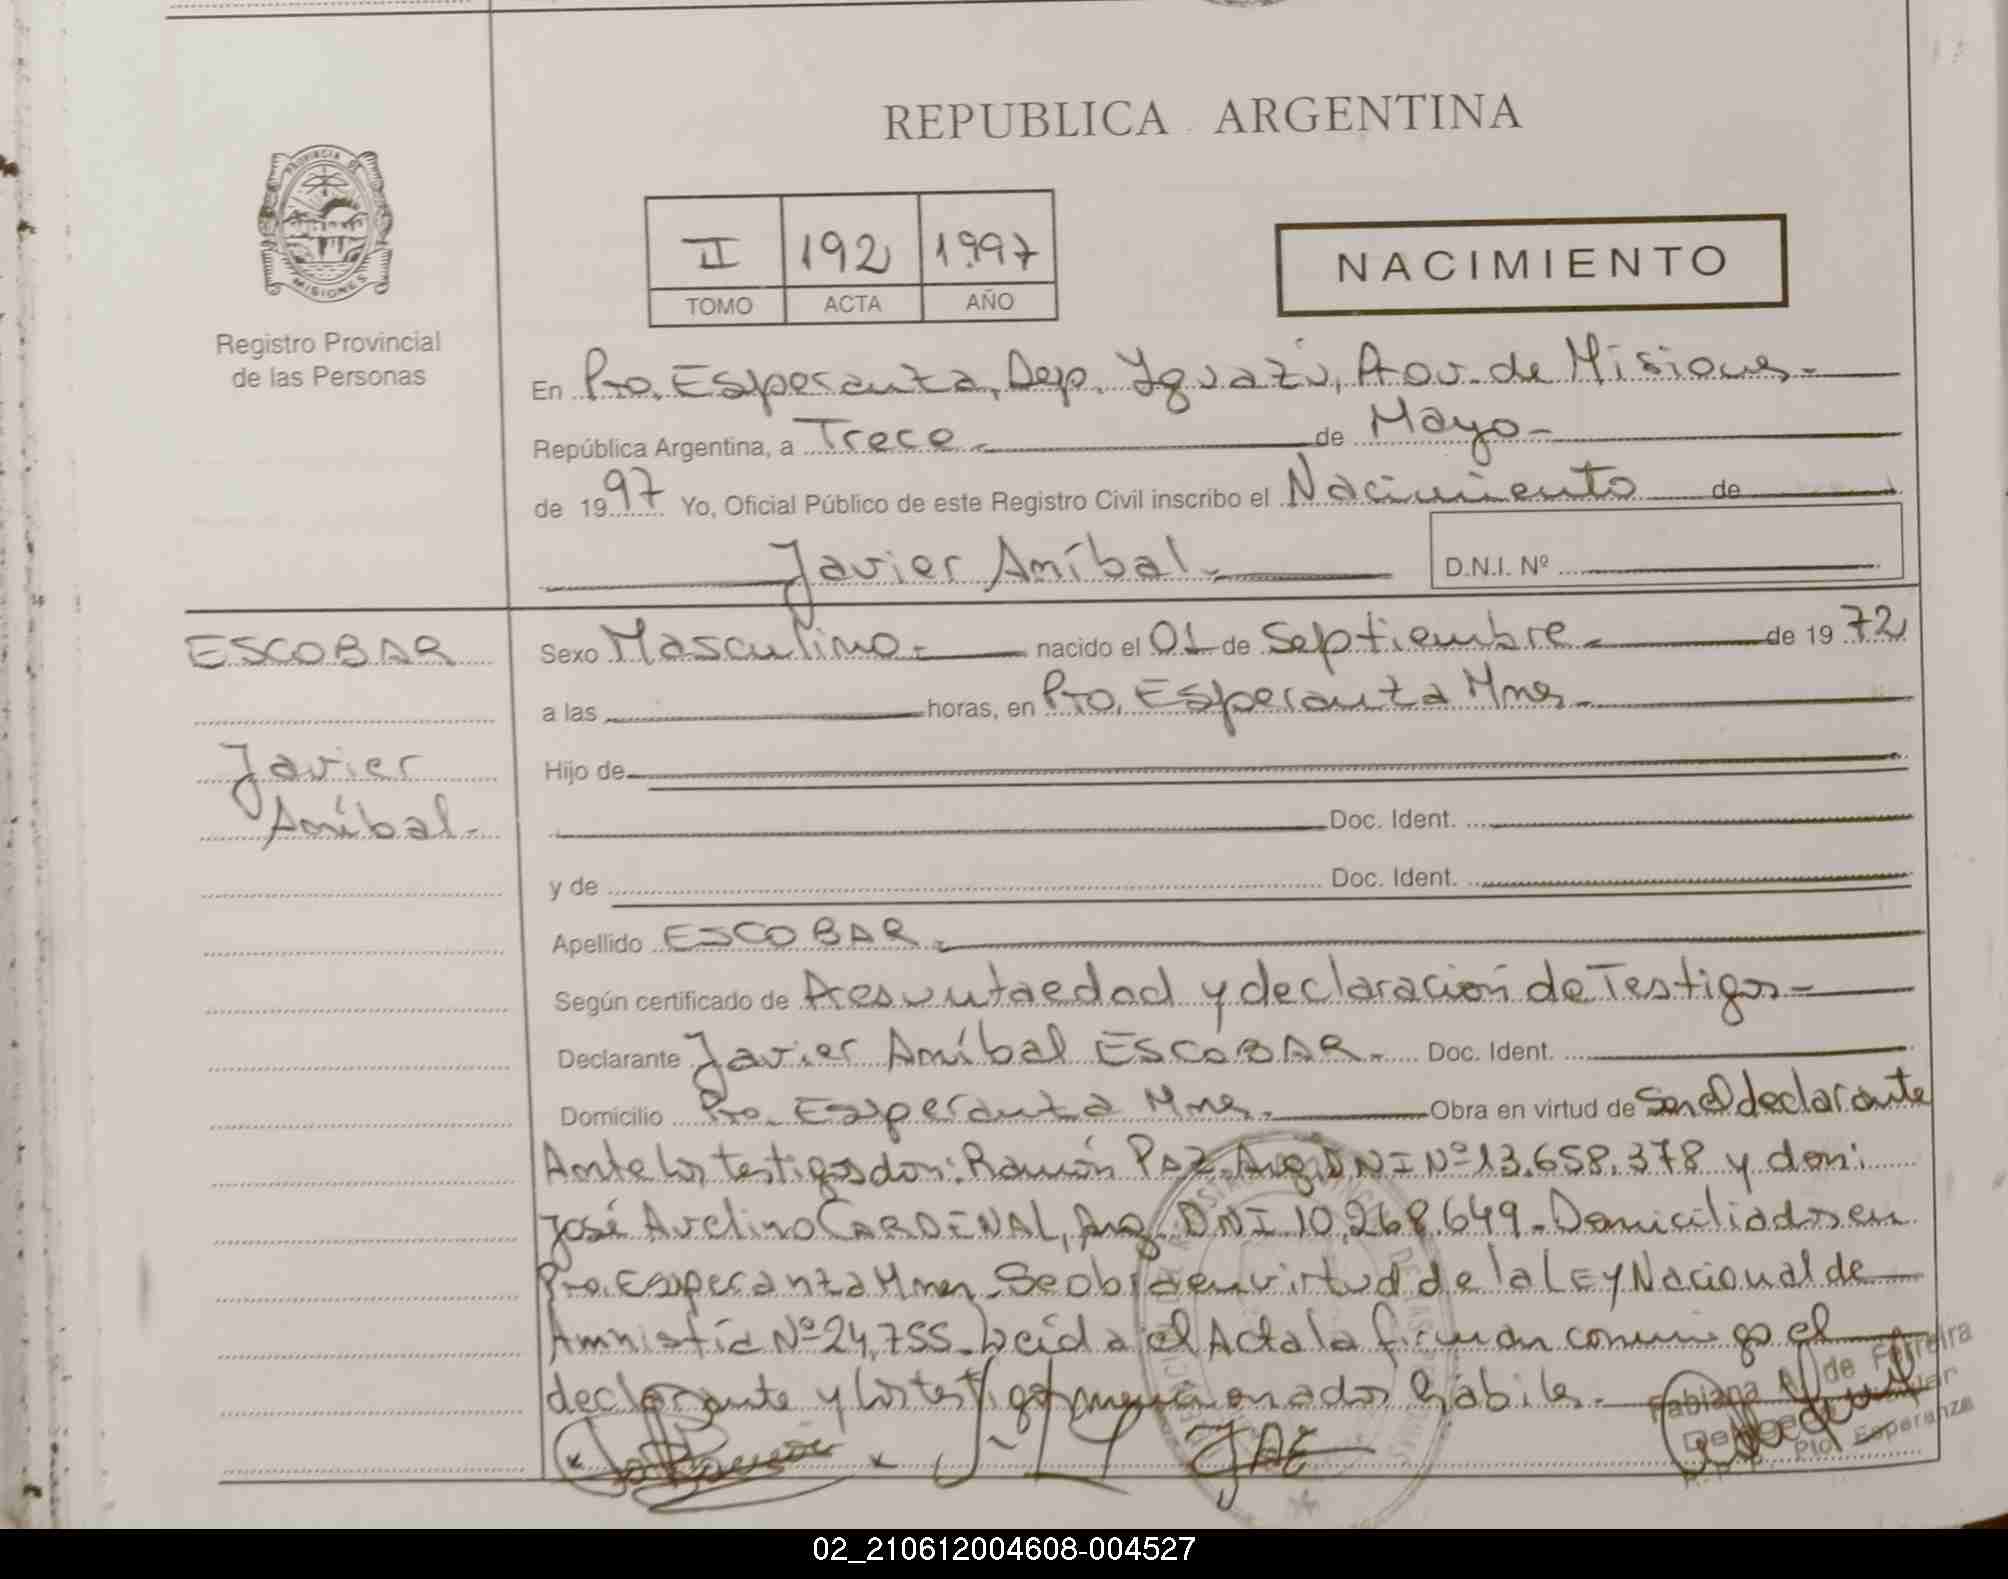 REPUBLICA ARGENTINA
PROVINCIA DE
MISIONES
Registro Provincial
de las Personas
II 192 1997
TOMO ACTA AÑO
NACIMIENTO
En Pto. Esperanza, Dep. Yguazú, Prov. de Misiones-
República Argentina, a Trece. de Mayo-
de 1997 Yo, Oficial Público de este Registro Civil inscribo el Nacimiento de
Javier Aníbal.
D.N.I. Nº
ESCOBAR
Javier
Aníbal-
Sexo Masculino- nacido el 01 de Septiembre.- de 1972
a las horas, en Pto. Esperanza Mnes.-
Hijo de
Doc. Ident.
y de Doc. Ident.
Apellido ESCOBAR.
Según certificado de Presunta edad y declaración de Testigos-
Declarante Javier Aníbal ESCOBAR.- Doc. Ident.
Domicilio Pto. Esperanza Mnes.- Obra en virtud de Ser el declarante
Ante los testigos don: Ramón PAZ, Arg. DNI Nº 13.658.378 y don:
José Avelino CARDENAL, Arg. DNI 10.268.649.- Domiciliados en
Pto. Esperanza Mnes. Se obra en virtud de la Ley Nacional de
Amnistía Nº 24.755. Leída el Acta la firman conmigo el
declarante y los testigos mencionados hábiles.-
JAE
Fabiana de Ferreira
Pto. Esperanza
02_210612004608-004527